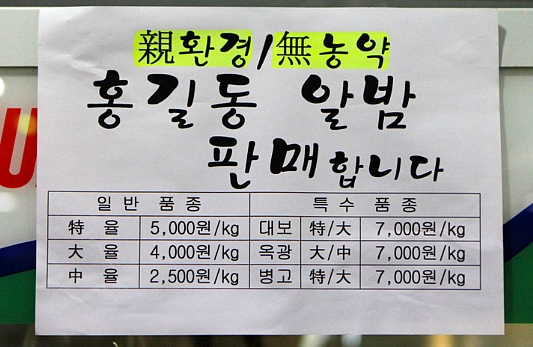 親환경/無농약
홍길동 알밤
판매합니다
일반품종 특수품종
特율 5,000원/kg 대보 特/大 7,000원/kg
大율 4,000원/kg 옥광 大/中 7,000원/kg
中율 2,500원/kg 병고 特/大 7,000원/kg